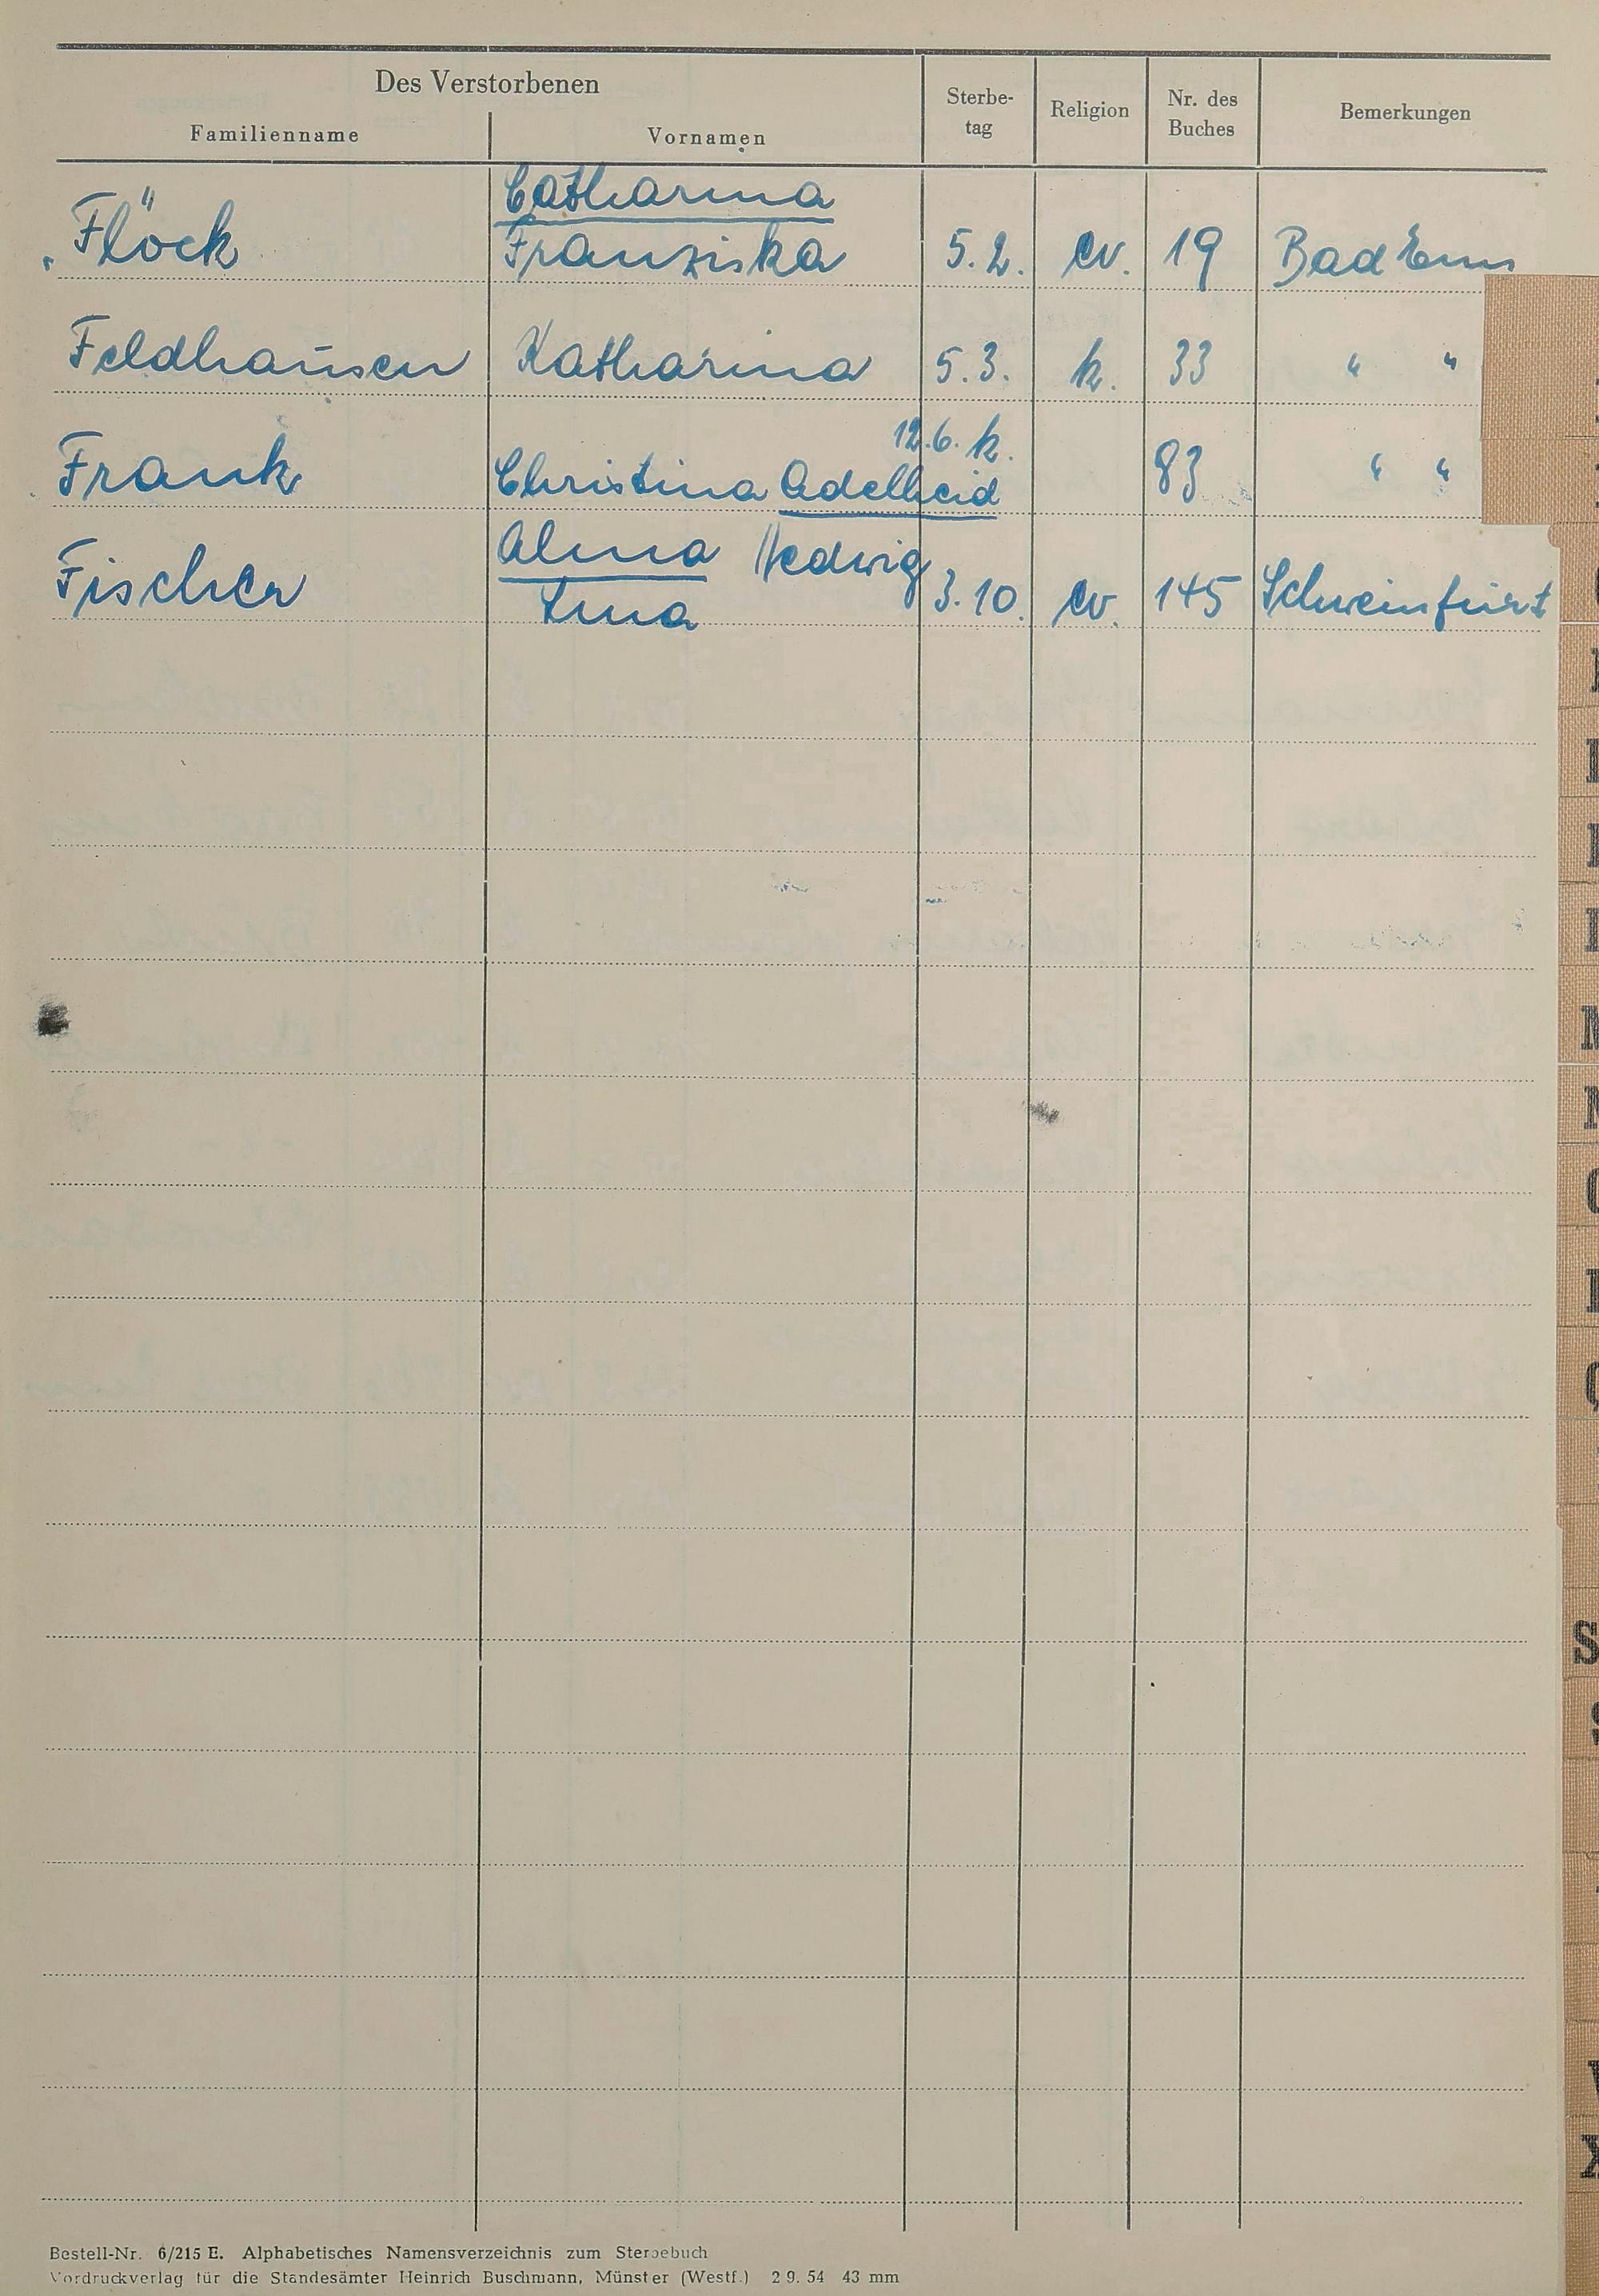 Des Verstorbenen
Familienname Vornamen Sterbe-tag Religion Nr. des Buches Bemerkungen
Catharina
Flöck Franziska 5.2. ev. 19 Bad Ems
Feldhausen Katharina 5.3. k. 33 " "
12.6. k.
Frank Christina Adelheid 83 " "
Alma Hedwig
Fischer 3.10. ev. 145 Schweinfurt
Bestell-Nr. 6/215 E. Alphabetisches Namensverzeichnis zum Sterbebuch
Vordruckverlag für die Standesämter Heinrich Buschmann, Münster (Westf.) 2 9. 54 43 mm